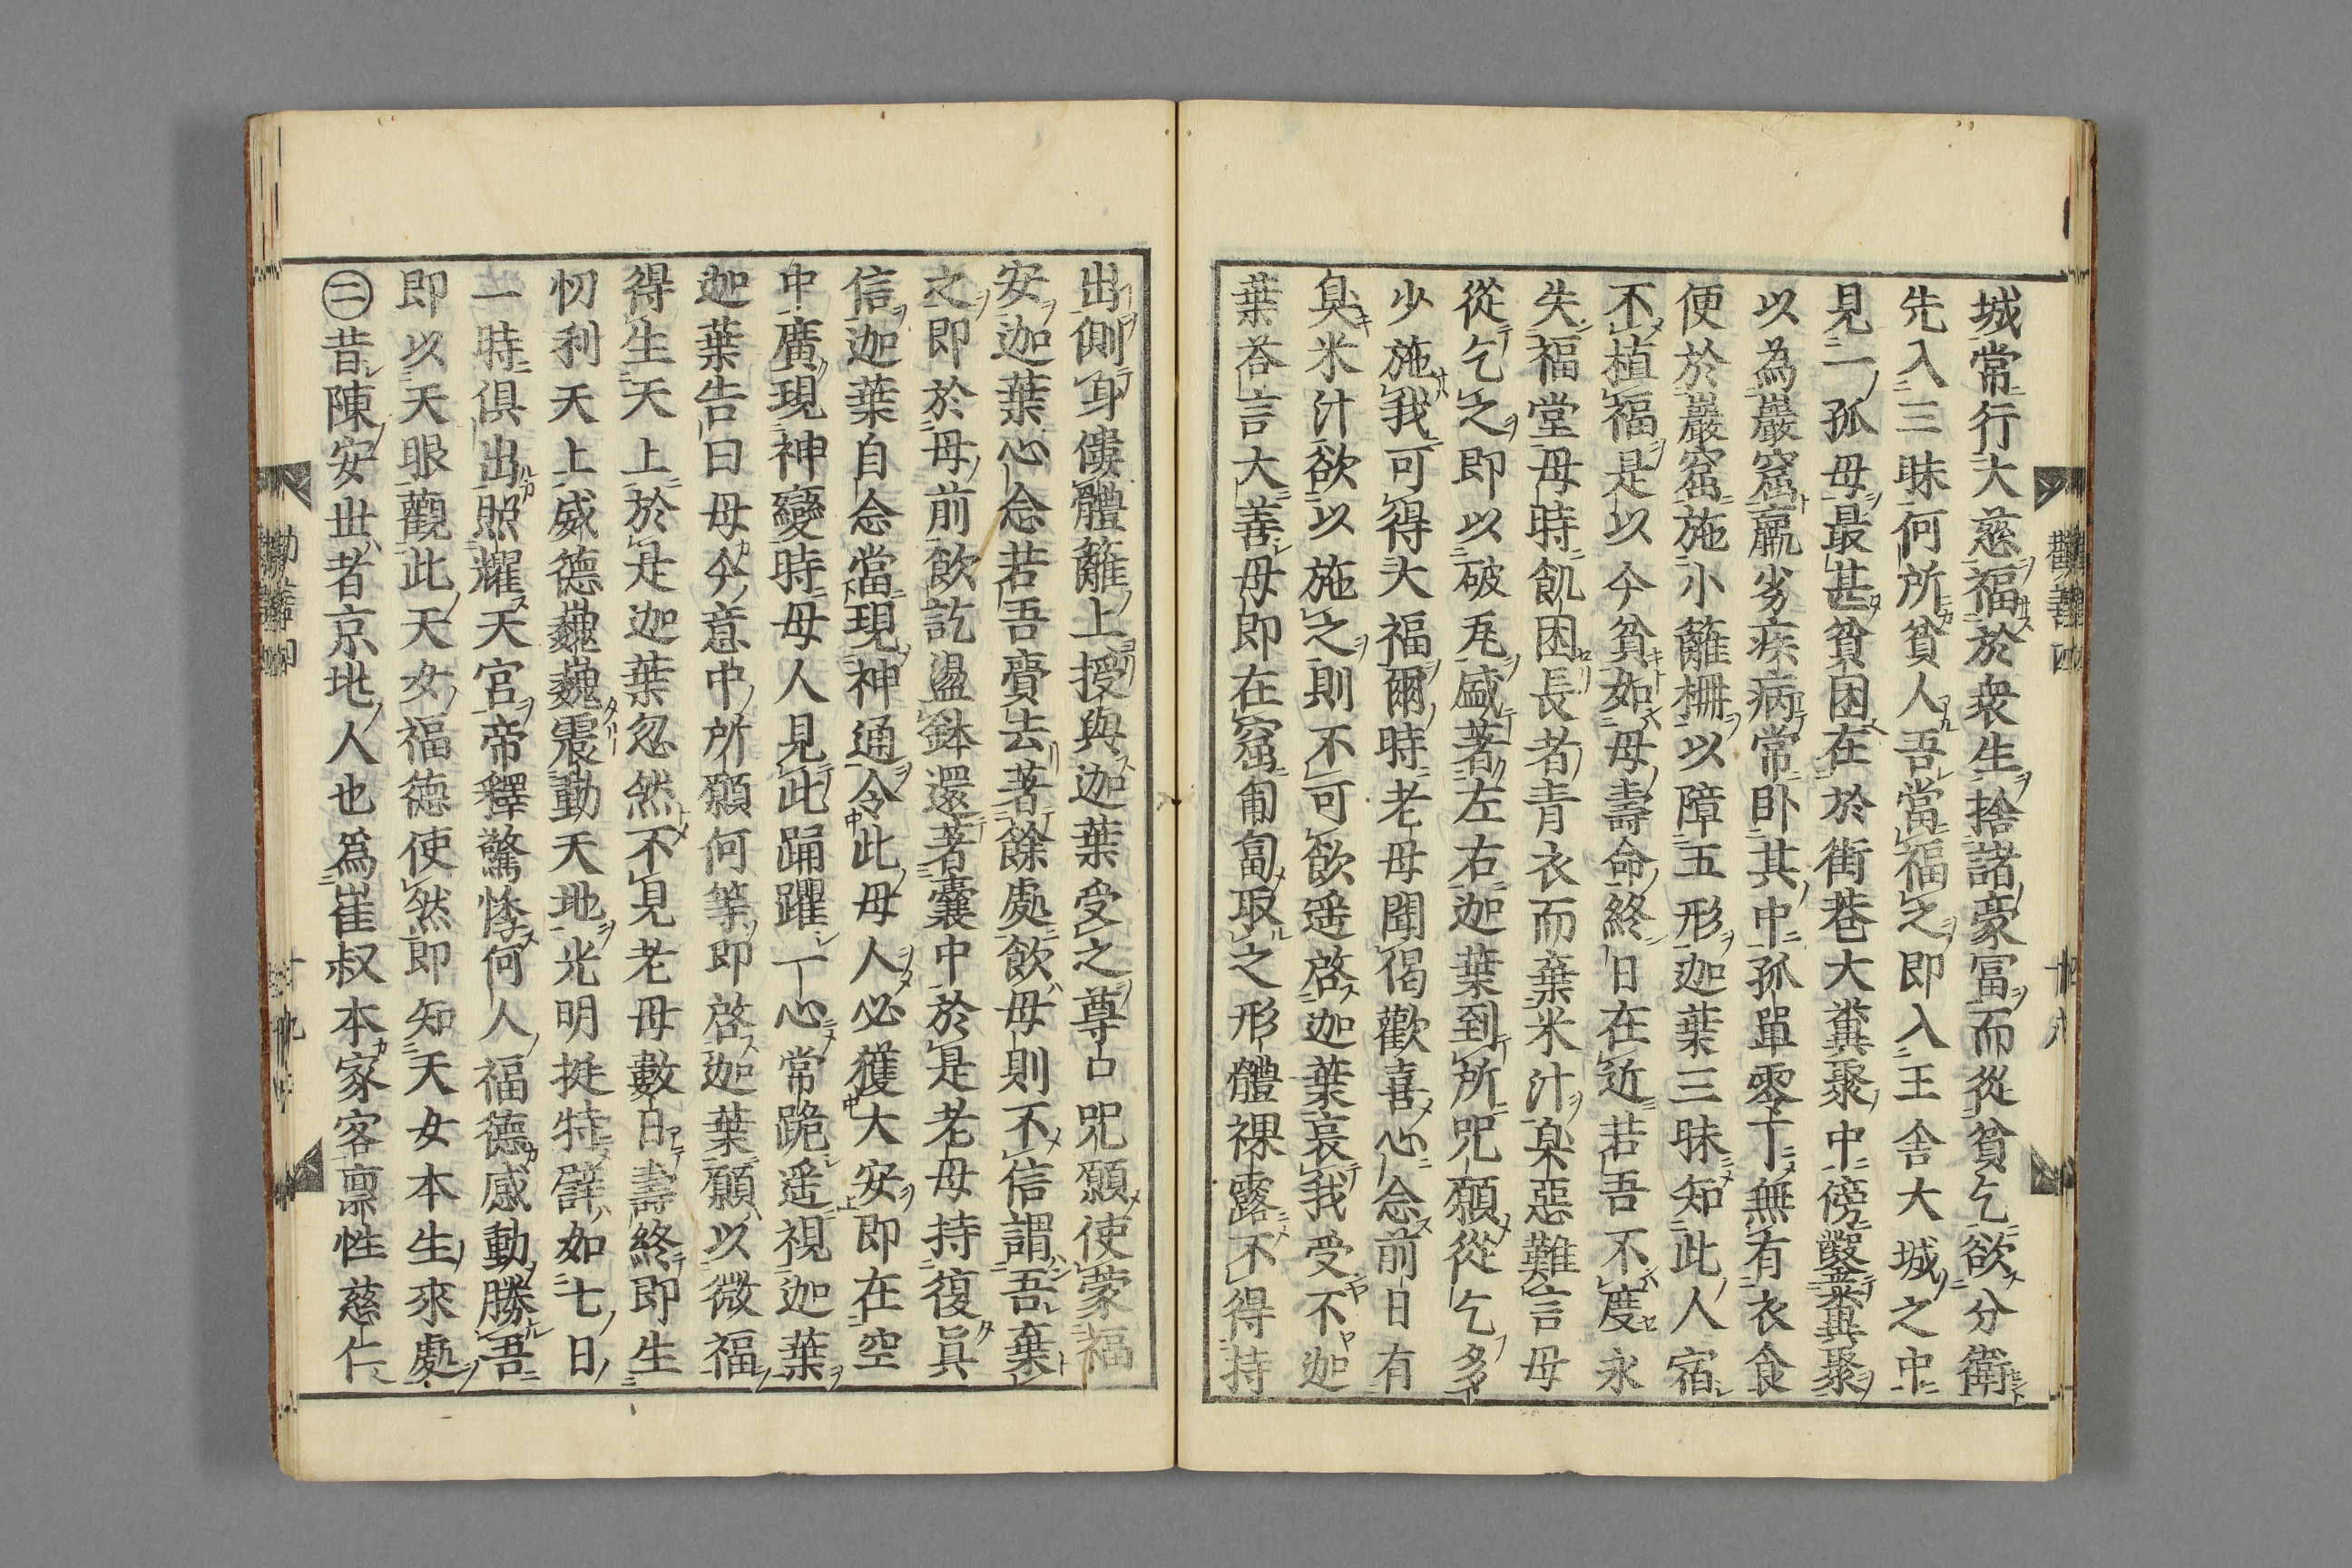 城常行大慈福於衆生捨諸豪冨而從貧乞欲分衛
先入三昧何所貧人吾當福之即入王舍大城之中
見一孤母最甚貧困在於街巷大糞聚中傍鑿糞聚
以為巖窟羸劣疾病常卧其中孤單零丁無有衣食
便於巖窟施小籬柵以障五形迦葉三昧知此人宿
不植福是以今貧如母壽命終日在近若吾不度永
失福堂母時飢困長者青衣而棄米汁臭惡難言母
從乞之即以破瓦盛著左右迦葉到所呪願從乞多
少施我可得大福爾時老母聞偈歡喜心念前日有
臭米汁欲以施之則不可飲遥啓迦葉哀我受不迦
葉荅言大善母即在窟匍匐取之形體裸露不得持
出側身僂體籬上授與迦葉受之尊口呪願使蒙福
安迦葉心念若吾賷去著餘處飲母則不信謂吾棄
之即於母前飲訖盪鉢還著囊中於是老母持復眞
信迦葉自念當現神通令此母人必獲大安即在空
中廣現神變時母人見此踊躍一心常跪遥視迦葉
迦葉告曰母今意中所願何等即啓迦葉願以微福
得生天上於是迦葉忽然不見老母數日壽終即生
忉利天上威德巍巍震動天地光明挺特譬如七日
一時俱出照耀天宮帝釋驚悸何人福德感動勝吾
即以天眼觀此天女福德使然即知天女本生來處
㊁昔陳安世者京地人也爲崔叔本家客禀性慈仁